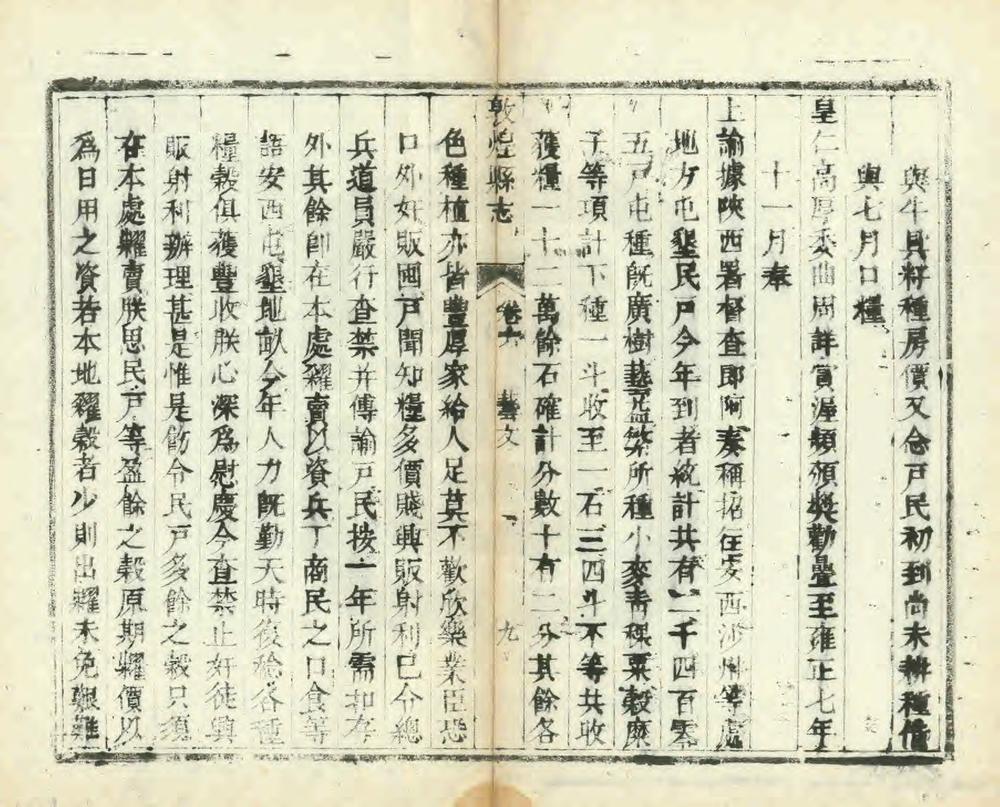 與牛具籽種房價又念戸民初到尚未耕種借
與七月口糧
皇仁高厚委曲周詳賞渥頻頒奬勸疊至雍正七年
十一月奉
上諭據陜西署督查郎阿奏稱招徃安西沙州等處
地方屯墾民戸今年到者統計共有二千四百零
五戸屯種既廣樹藝益繁所種小麥青稞粟穀糜
子等項計下種一斗收至一石三四斗不等共收
獲糧一十二萬餘石確計分數十有二分其餘各
敦煌縣志 卷 藝文 九
色種植亦皆豐厚家給人足莫不歡欣樂業臣恐
口外奸販囤戸聞知糧多價賤興販射利已令總
兵道員嚴行查禁并傳諭戸民按一年所需扣存
外其餘即在本處糶賣以資兵丁商民之口食等
語安西屯墾地畝今年人力既勤天時復稔各種
糧穀俱獲豐收朕心深爲慰慶今查禁止奸徒興
販射利辦理甚是惟是飭令民戸多餘之穀只須
在本處糶賣朕思民戸等盈餘之穀原期糶價以
爲日用之資若本地糴穀者少則出糶未免艱難